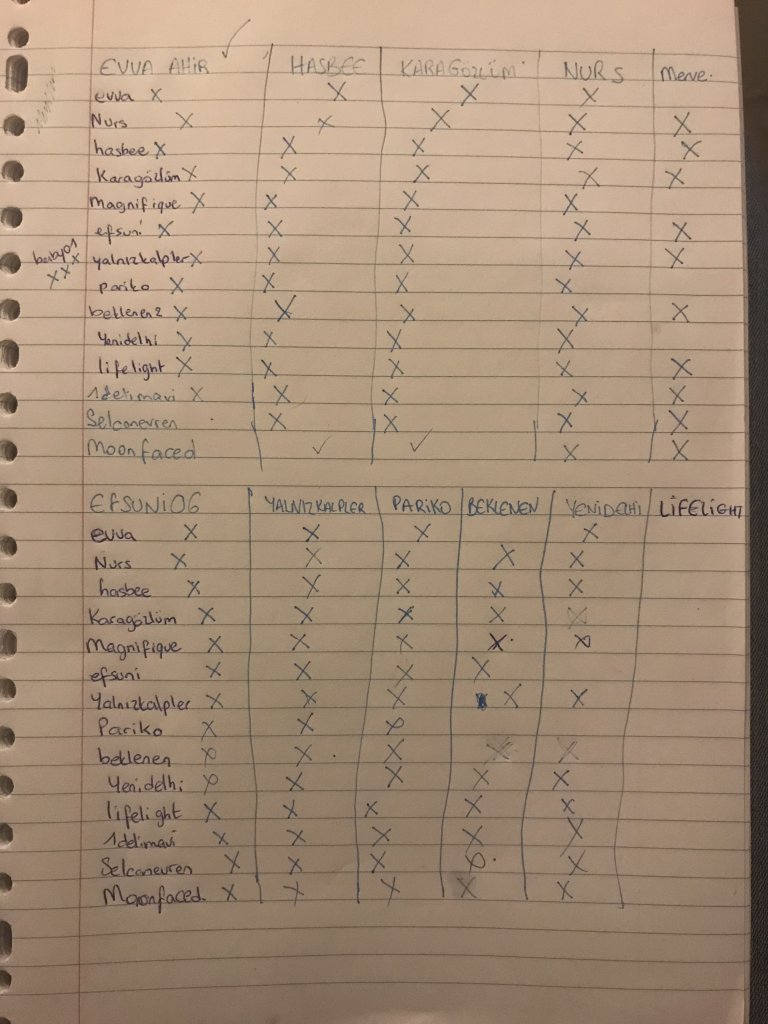 EVVA AHIR ✓ HASBEE KARAGÖZLÜM NURS Merve.
evva X X X X
Nurs X X X X X
hasbee X X X X X
Karagözlüm X X X X X
Magnifique X X X X
efsuni X X X X X
yalnızkalpler X X X X X
XXX
pariko X X X X
beklenen2 X X X X X
Yenidelhi X X X X
lifelight X X X X X
1delimavi X X X X X
Selcanevren X X X X
Moonfaced ✓ ✓ X X
EFSUNİ06 YALNIZKALPLER PARİKO BEKLENEN YENİDELHİ LİFELİGHT
evva X X X X
Nurs X X X X X
hasbee X X X X X
Karagözlüm X X X X X
Magnifique X X X X X
efsuni X X X X
Yalnızkalpler X X X X X
Pariko X X X
beklenen X X X X X
Yenidelhi X X X X X
lifelight X X X X X
1delimavi X X X X X
Selcanevren X X X X X
Moonfaced. X X X X X